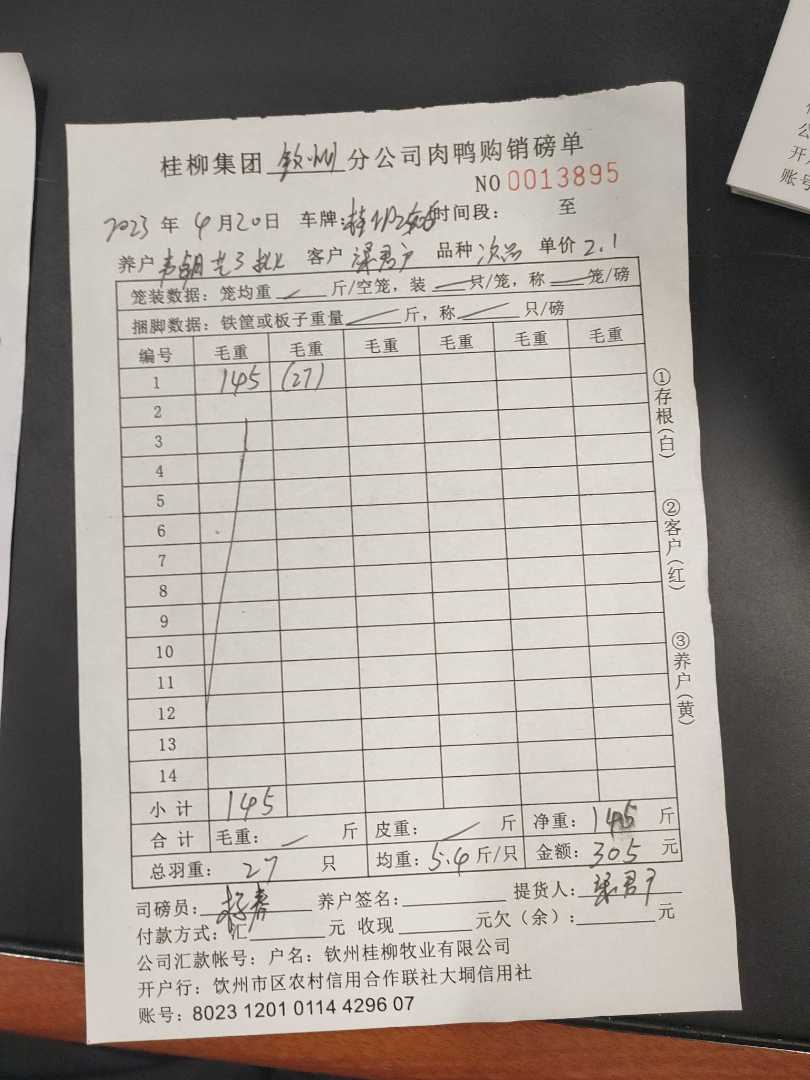 桂柳集团 钦州 分公司肉鸭购销磅单
NO 0013895
2023 年 4 月 20 日 车牌: 时间段: 至
养户 韦朝 客户 梁君 品种 次品 单价 2.1
笼装数据: 笼均重 斤/空笼, 装 只/笼, 称 笼/磅
捆脚数据: 铁筐或板子重量 斤, 称 只/磅
编号 毛重 毛重 毛重 毛重 毛重 毛重
1 145 (27)
2
3
4
5
6
7
8
9
10
11
12
13
14
小计 145
合计 毛重: 斤 皮重: 斤 净重: 145 斤
总羽重: 27 只 均重: 5.4 斤/只 金额: 305 元
司磅员: 养户签名: 提货人: 梁君
付款方式: 汇 元 收现 元欠(余): 元
公司汇款帐号: 户名: 钦州桂柳牧业有限公司
开户行: 饮州市区农村信用合作联社大垌信用社
账号: 8023 1201 0114 4296 07
①存根(白)
②客户(红)
③养户(黄)
公
开户
账号